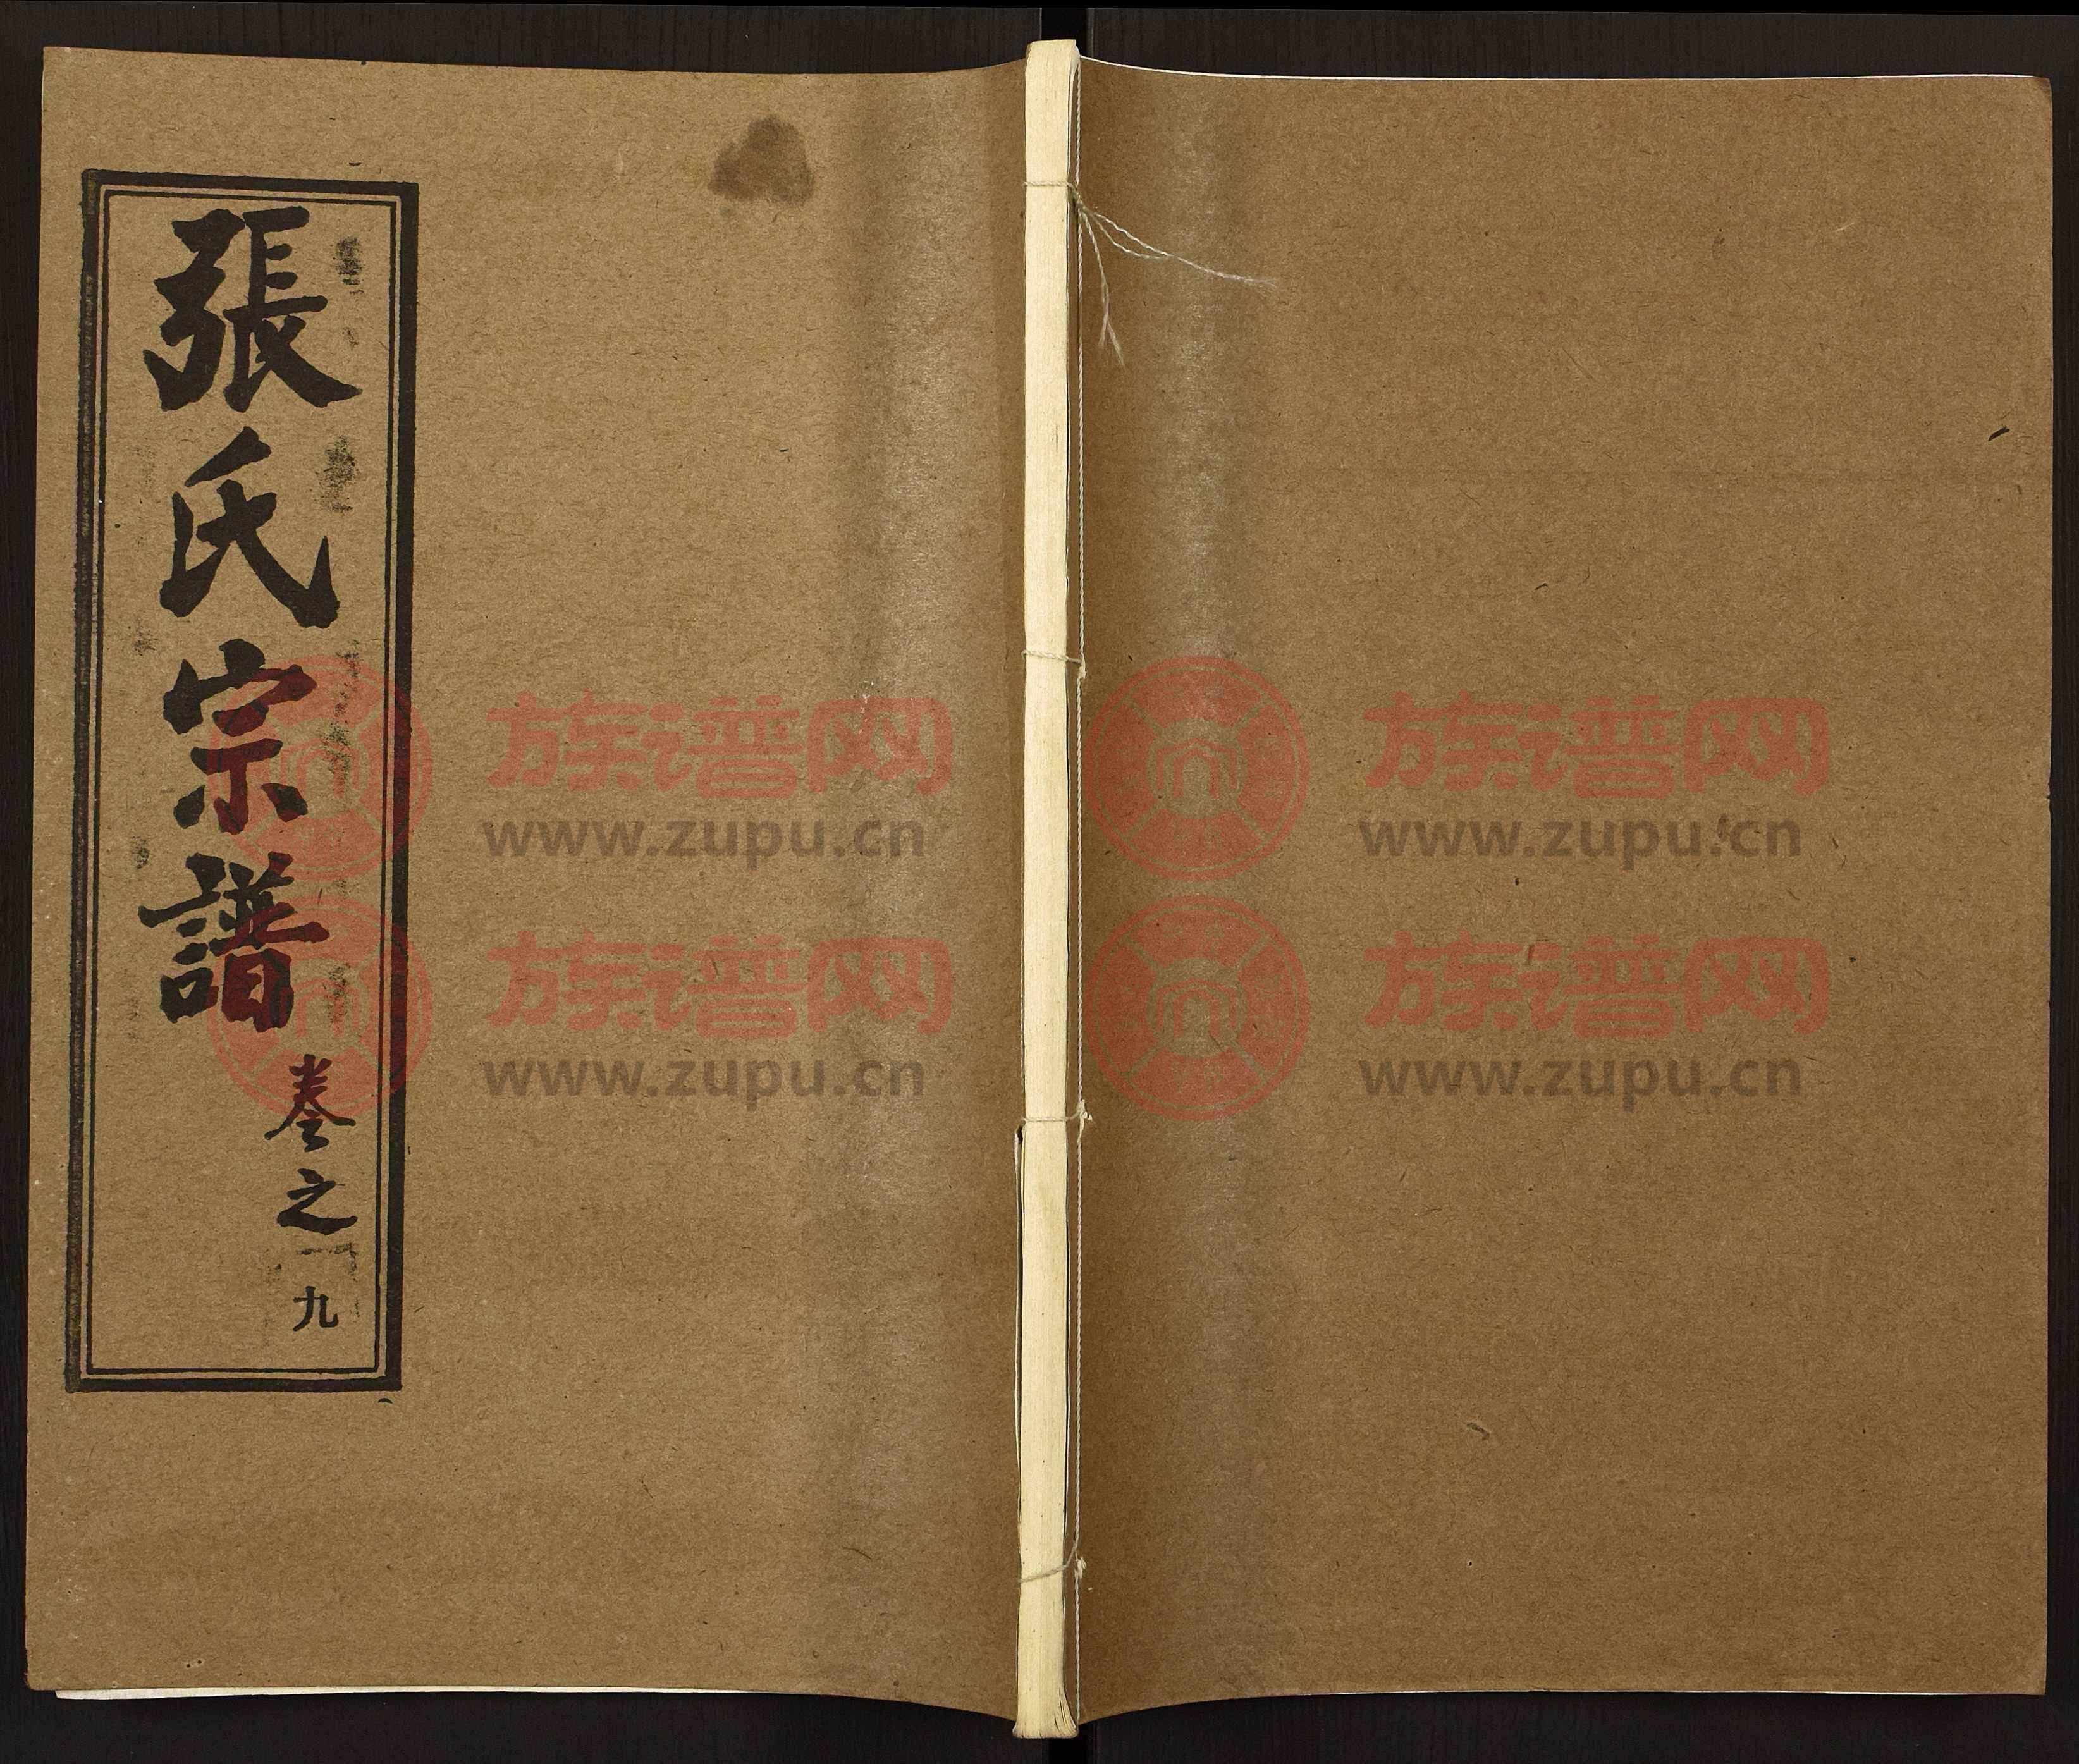 張氏宗譜
卷之九
族谱网
www.zupu.cn
族谱网
www.zupu.cn
族谱网
www.zupu.cn
族谱网
www.zupu.cn